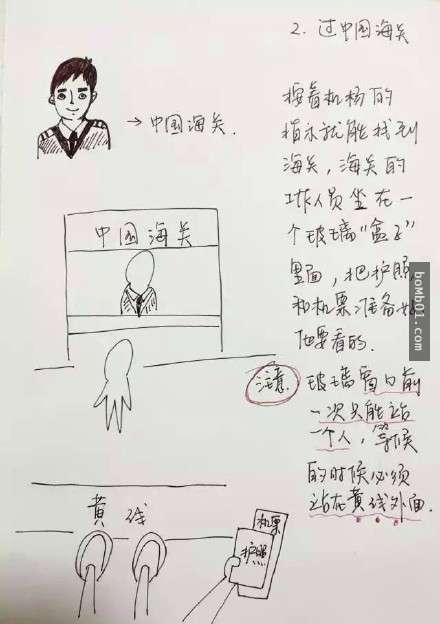 2. 过中国海关
→中国海关.
按着机场的
指示就能找到
海关，海关的
工作人员坐在一
个玻璃"盒子"
里面，把护照
和机票准备好
他要看的.
注意 玻璃窗口前
一次只能站
一个人，等候
的时候必须
站在黄线外面.
中国海关
黄线
机票
护照
bomb01.com